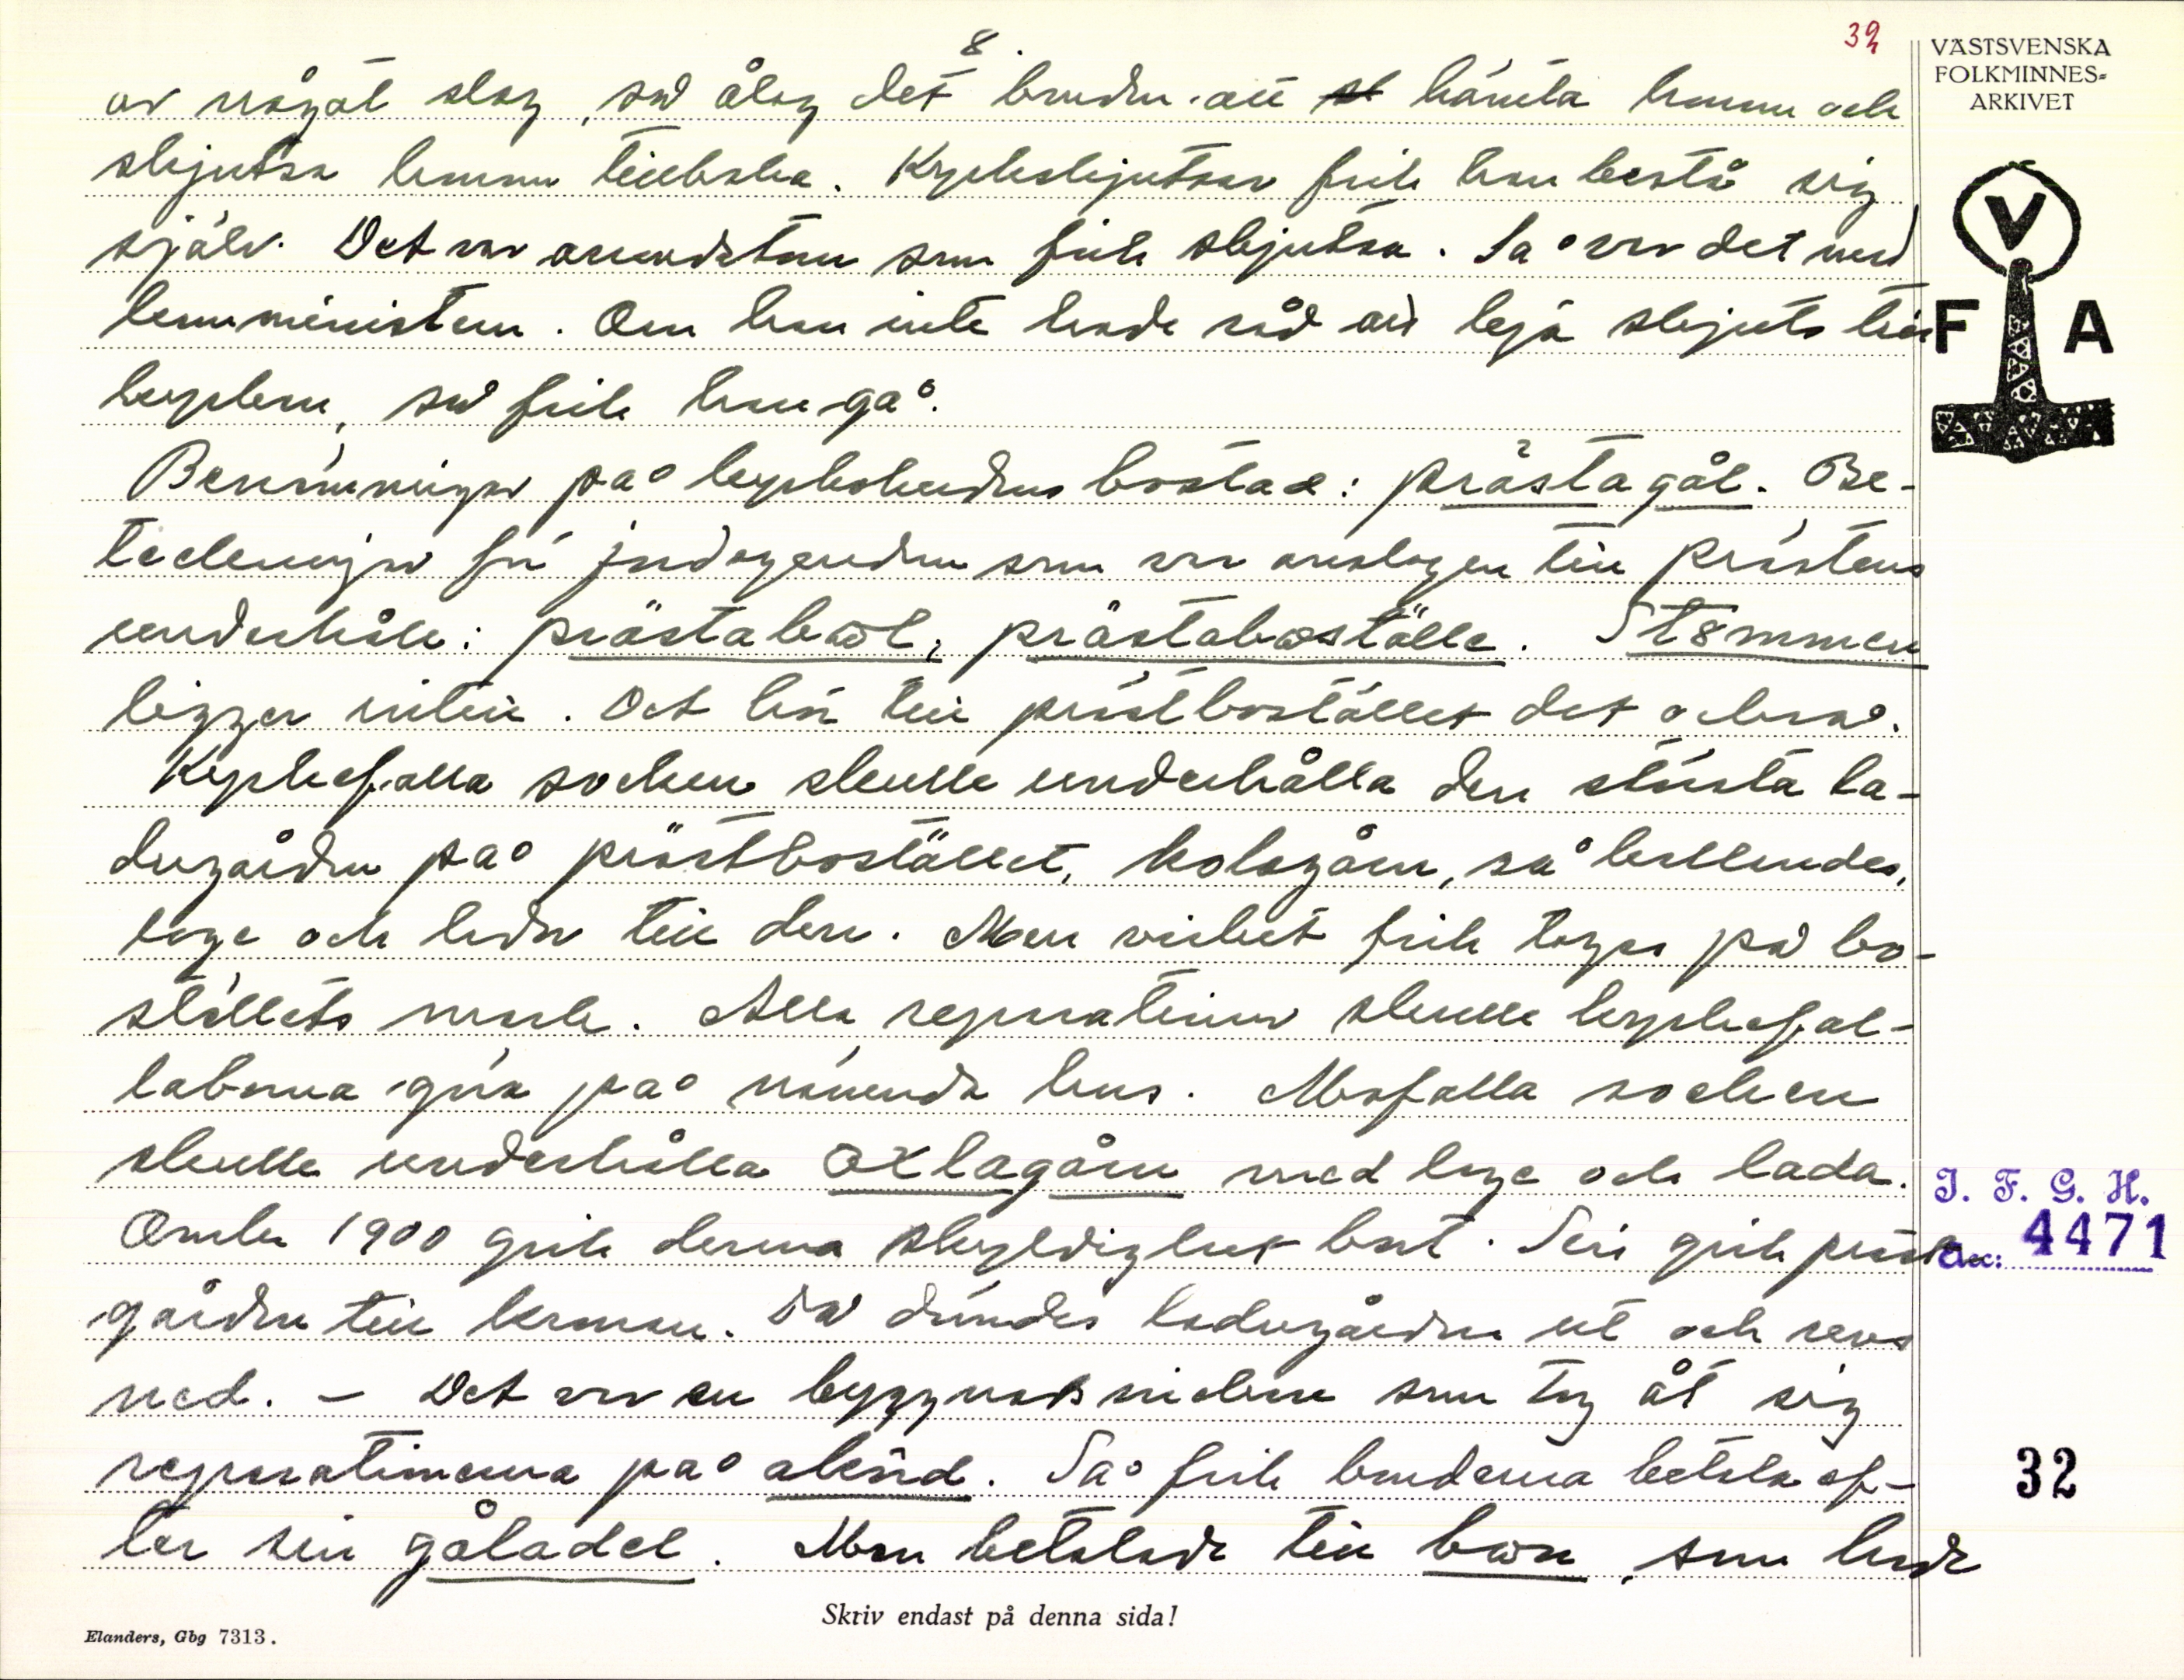 8.
32
av något slag, så ålåg det bonden att hämta honom och
skjutsa honom tillbaka. Kyrkskjutsar fick han bestå sig
själv. Det var arrendatorn som fick skjutsa. Så var det med
komministern. Om han inte hade råd att leja skjuts till
kyrkan, så fick han gå.
Benämningar på kyrkoherdens bostad: prästagål. Be-
teckningar för jordegendom som var anslagen till prästens
underhåll: prästabol, prästaboställe. Stommen
ligger intill. Det hör till prästbostället det också.
Kyrkefalla socken skulle underhålla den största la-
dugården på prästbostället, kolagårn, så kallades,
loge och lador till den. Men virket fick tagas på bo-
ställets mark. Alla reparationer skulle kyrkefal-
laborna göra på nämnda hus. Mofalla socken
skulle underhålla oxlagårn med loge och lada.
Omkr 1900 gick denna skyldighet bort. Sen gick präst
gården till kronan. Då dömdes ladugården ut och revs
ned. – Det var en byggnadsnickare som tog åt sig
reparationerna på akord. Så fick bönderna betala ef-
ter sin gåladel. Man betalade till , som hade
VÄSTSVENSKA
FOLKMINNES-
ARKIVET
V
F A
I. F. G. H.
Acc: 4471
32
Skriv endast på denna sida!
Elanders, Gbg 7313.